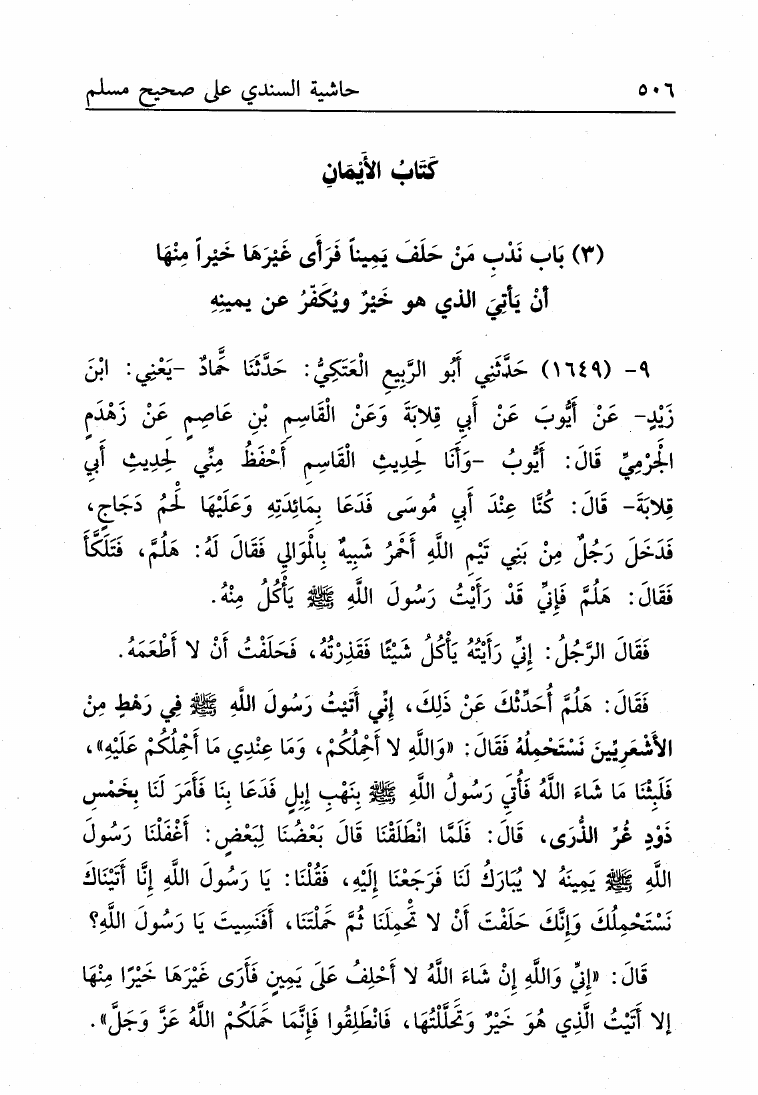 ٥٠٦ حاشية السندي على صحيح مسلم
كَتَابُ الأَيْمَانِ
(٣) بَاب نَدْبِ مَنْ حَلَفَ يَمِيناً فَرَأَى غَيْرَهَا خَيْراً مِنْهَا
أنْ يَأتِيَ الذي هو خَيْرٌ ويُكَفِّرُ عن يمينِهِ
٩- (١٦٤٩) حَدَّثَنِي أَبُو الرَّبِيعِ الْعَتَكِيُّ: حَدَّثَنَا حَمَّادٌ -يَعْنِي: ابْنَ
زَيْدٍ- عَنْ أَيُّوبَ عَنْ أَبِي قِلابَةَ وَعَنْ الْقَاسِمِ بْنِ عَاصِمٍ عَنْ زَهْدَمٍ
الْجَرْمِيِّ قَالَ: أَيُّوبُ -وَأَنَا لِحَدِيثِ الْقَاسِمِ أَحْفَظُ مِنِّي لِحَدِيثِ أَبِي
قِلابَةَ- قَالَ: كُنَّا عِنْدَ أَبِي مُوسَى فَدَعَا بِمَائِدَتِهِ وَعَلَيْهَا لَحْمُ دَجَاجٍ،
فَدَخَلَ رَجُلٌ مِنْ بَنِي تَيْمِ اللَّهِ أَحْمَرُ شَبِيهٌ بِالْمَوَالِي فَقَالَ لَهُ: هَلُمَّ، فَتَلَكَّأَ
فَقَالَ: هَلُمَّ فَإِنِّي قَدْ رَأَيْتُ رَسُولَ اللَّهِ ﷺ يَأْكُلُ مِنْهُ.
فَقَالَ الرَّجُلُ: إِنِّي رَأَيْتُهُ يَأْكُلُ شَيْئًا فَقَذِرْتُهُ، فَحَلَفْتُ أَنْ لا أَطْعَمَهُ.
فَقَالَ: هَلُمَّ أُحَدِّثْكَ عَنْ ذَلِكَ، إِنِّي أَتَيْتُ رَسُولَ اللَّهِ ﷺ فِي رَهْطٍ مِنْ
الأَشْعَرِيِّينَ نَسْتَحْمِلُهُ فَقَالَ: «وَاللَّهِ لا أَحْمِلُكُمْ، وَمَا عِنْدِي مَا أَحْمِلُكُمْ عَلَيْهِ»،
فَلَبِثْنَا مَا شَاءَ اللَّهُ فَأُتِيَ رَسُولُ اللَّهِ ﷺ بِنَهْبِ إِبِلٍ فَدَعَا بِنَا فَأَمَرَ لَنَا بِخَمْسِ
ذَوْدٍ غُرِّ الذُّرَى، قَالَ: فَلَمَّا انْطَلَقْنَا قَالَ بَعْضُنَا لِبَعْضٍ: أَغْفَلْنَا رَسُولَ
اللَّهِ ﷺ يَمِينَهُ لا يُبَارَكُ لَنَا فَرَجَعْنَا إِلَيْهِ، فَقُلْنَا: يَا رَسُولَ اللَّهِ إِنَّا أَتَيْنَاكَ
نَسْتَحْمِلُكَ وَإِنَّكَ حَلَفْتَ أَنْ لا تَحْمِلَنَا ثُمَّ حَمَلْتَنَا، أَفَنَسِيتَ يَا رَسُولَ اللَّهِ؟
قَالَ: «إِنِّي وَاللَّهِ إِنْ شَاءَ اللَّهُ لا أَحْلِفُ عَلَى يَمِينٍ فَأَرَى غَيْرَهَا خَيْرًا مِنْهَا
إلا أَتَيْتُ الَّذِي هُوَ خَيْرٌ وَتَحَلَّلْتُهَا، فَانْطَلِقُوا فَإِنَّمَا حَمَلَكُمْ اللَّهُ عَزَّ وَجَلَّ».